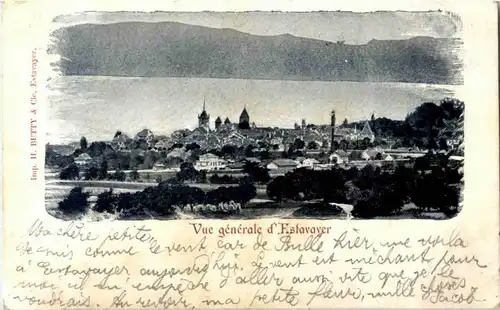 Imp. H. BUTTY & Cie, Estavayer.
Vue générale d'Estavayer
Ma chère petite,
Je suis comme le vent car de Bulle hier, me voilà
à Estavayer aujourd'hui. Le vent est méchant pour
moi il m'empêche d'aller aussi vite que je le
voudrais. Au revoir, ma petite fleur, mille choses
Jacob